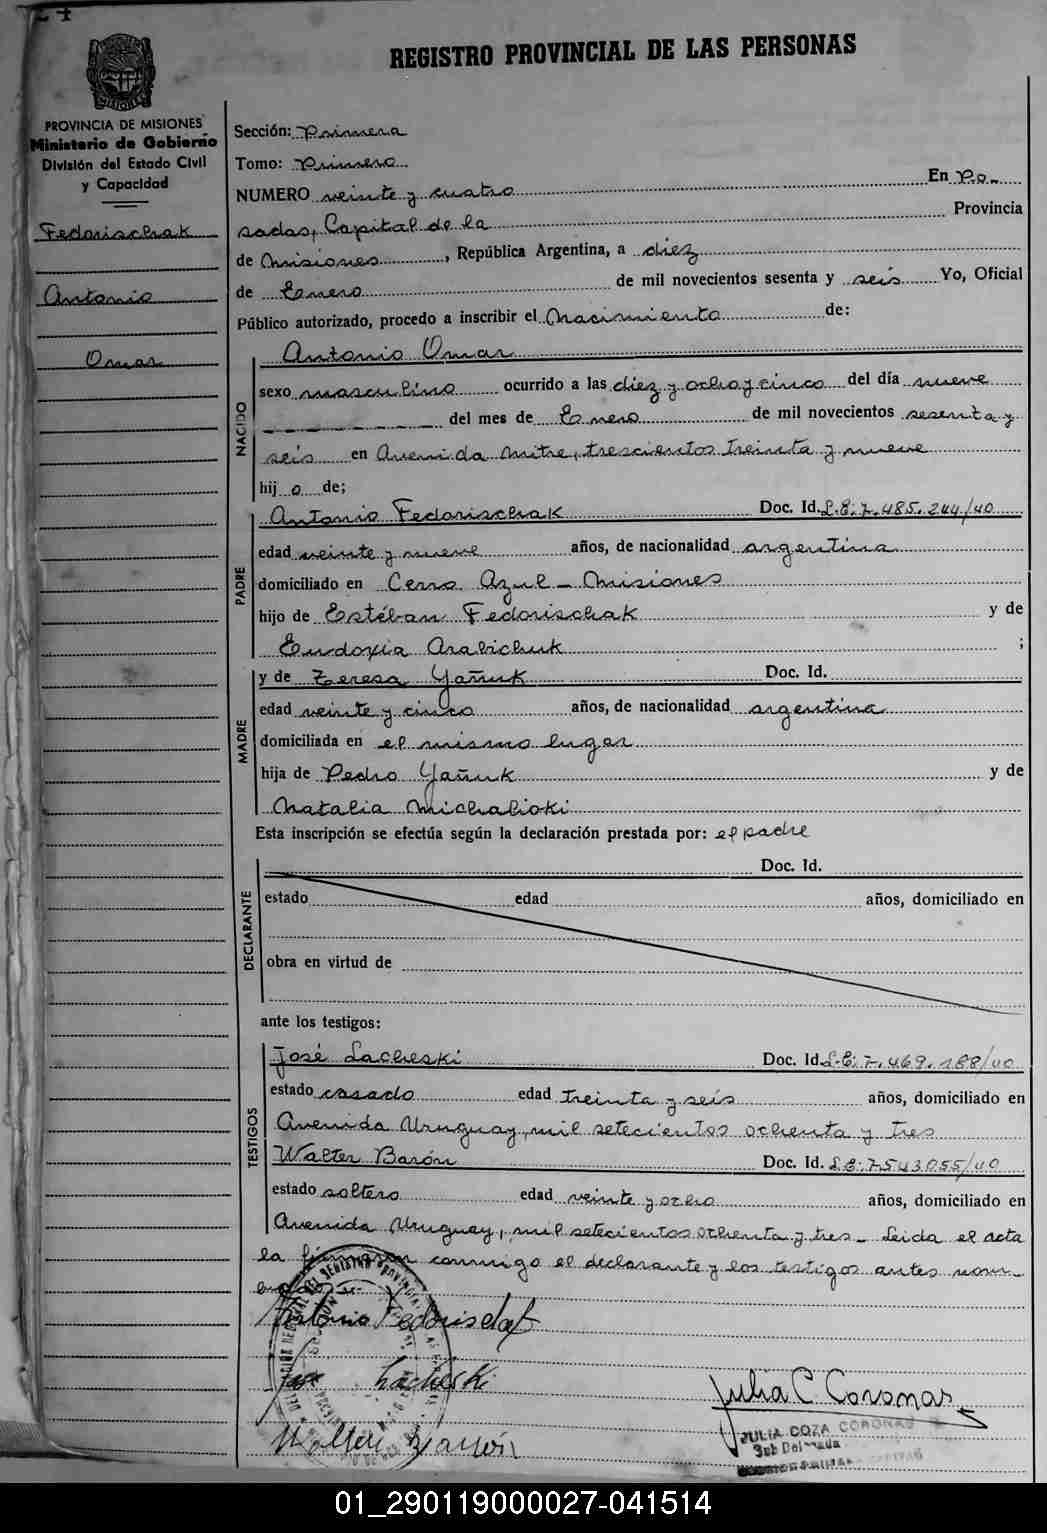 24
REGISTRO PROVINCIAL DE LAS PERSONAS
MISIONES
PROVINCIA DE MISIONES
Ministerio de Gobierno
División del Estado Civil
y Capacidad
Fedorischak
Antonio
Omar
Sección: Primera
Tomo: Primero
NUMERO veinte y cuatro En Po-
sadas, Capital de la Provincia
de Misiones, República Argentina, a diez
de Enero de mil novecientos sesenta y seis Yo, Oficial
Público autorizado, procedo a inscribir el Nacimiento de:
NACIDO
Antonio Omar
sexo masculino ocurrido a las diez y ocho y cinco del día nueve
del mes de Enero de mil novecientos sesenta y
seis en Avenida Mitre, trescientos treinta y nueve
hij o de;
PADRE
Antonio Fedorischak Doc. Id. L.E: 7.485.244/40
edad veinte y nueve años, de nacionalidad argentina
domiciliado en Cerro Azul - Misiones
hijo de Estéban Fedorischak y de
Eudoxia Arabichuk ;
MADRE
y de Teresa Yañuk Doc. Id.
edad veinte y cinco años, de nacionalidad argentina
domiciliada en el mismo lugar
hija de Pedro Yañuk y de
Natalia Michalioki
Esta inscripción se efectúa según la declaración prestada por: el padre
DECLARANTE
Doc. Id.
estado edad años, domiciliado en
obra en virtud de
ante los testigos:
TESTIGOS
José Lacheski Doc. Id. L.E: 7.469.188/40
estado casado edad treinta y seis años, domiciliado en
Avenida Uruguay, mil setecientos ochenta y tres
Walter Barón Doc. Id. L.E: 7543055/40
estado soltero edad veinte y ocho años, domiciliado en
Avenida Uruguay, mil setecientos ochenta y tres - Leida el acta
la firmaron conmigo el declarante y los testigos antes nom-
Antonio Fedorischak
José Lacheski
Walter Barón
Julia C Coronas
JULIA COZA CORONAS
Sub Delegada
01_290119000027-041514